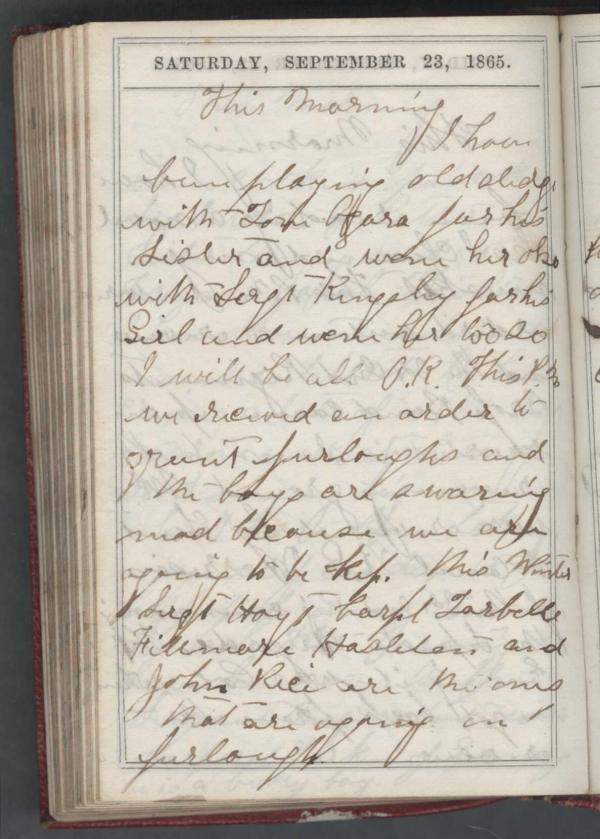 SATURDAY, SEPTEMBER 23, 1865.
This Morning
I have
been playing old sledge
with Tom Ogara for his
Sister and wone her also
with Sergt Kingsley for his
Girl and wone her too so
I will be all O.K. This P.M
we recived an order to
grant furloughs and
the boys are swaring
mad because we are
agoing to be kep. this Winter
Sergt Hoyt Corpl Tarbell
Fillmore Haslden and
John Rice are the ones
that are agoing on
furlough